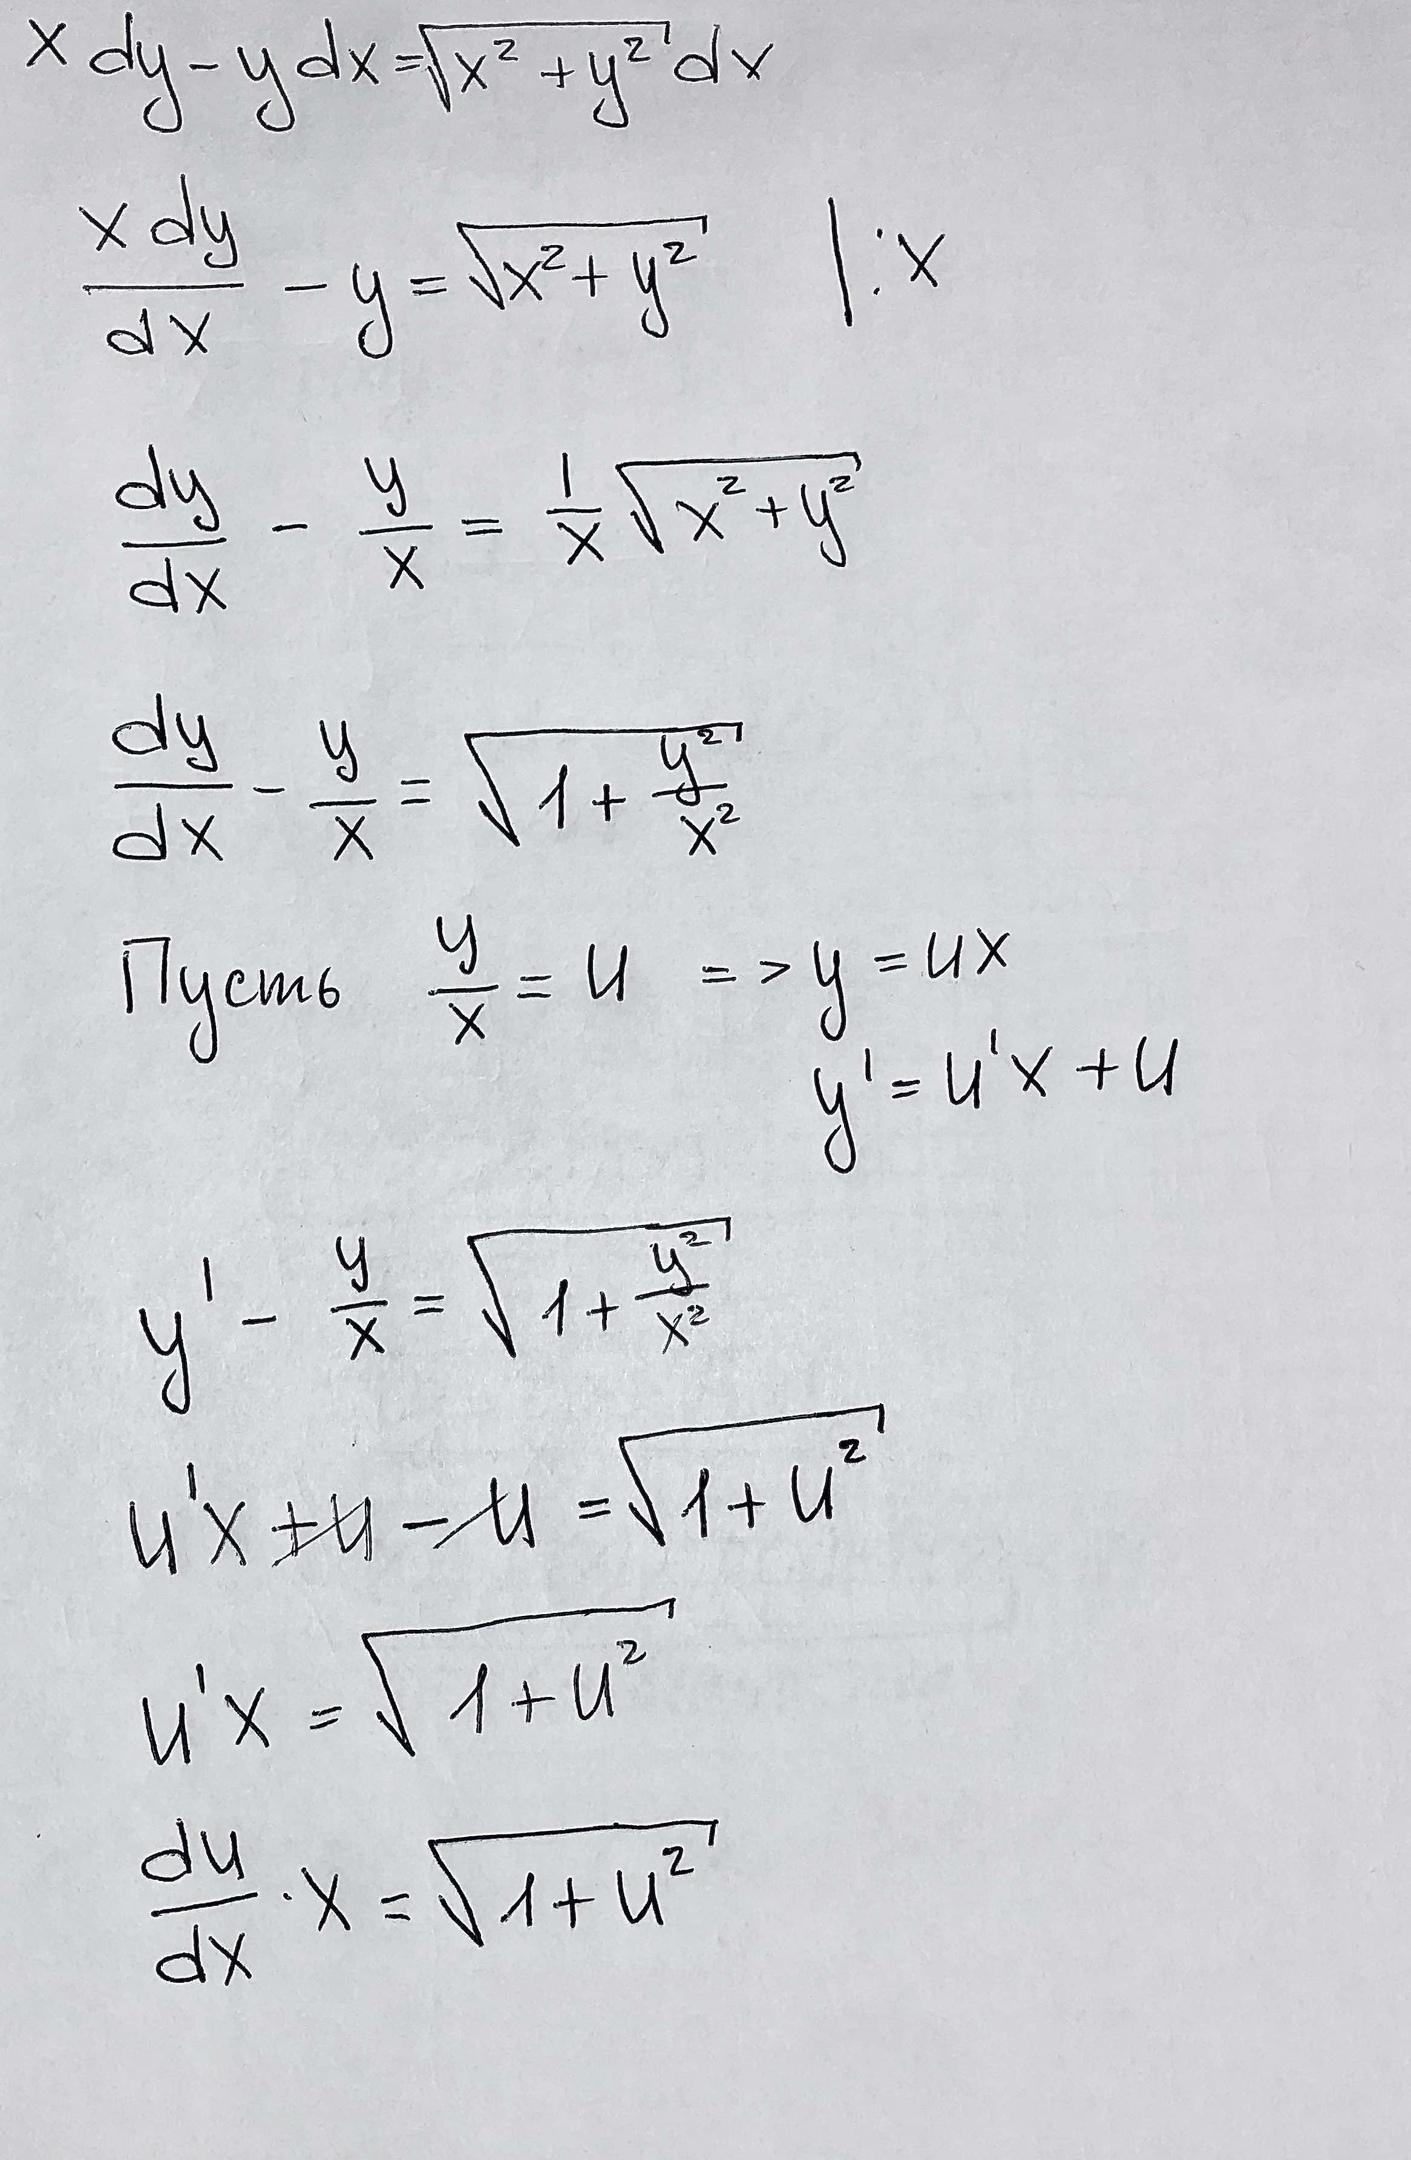 x dy - y dx = √(x² + y²) dx
x dy / dx - y = √(x² + y²) | : x
dy/dx - y/x = 1/x √(x² + y²)
dy/dx - y/x = √(1 + y²/x²)
Пусть y/x = u => y = ux
y' = u'x + u
y' - y/x = √(1 + y²/x²)
u'x + u - u = √(1 + u²)
u'x = √(1 + u²)
du/dx · x = √(1 + u²)